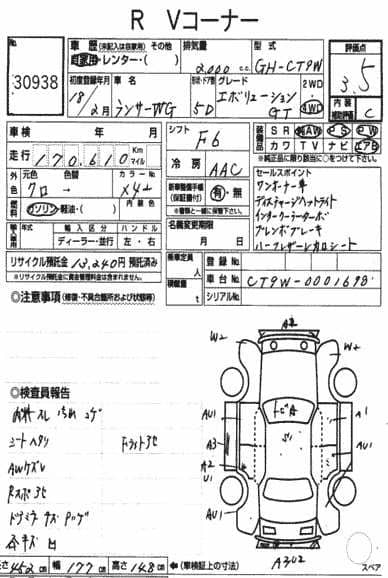 R Vコーナー
30938
車歴 (未記入は自家用) その他
自家用・レンター・( )
排気量 2,000 c.c.
型式 GH-CT9W
評価点 3.5
内装補助評価 C
初度登録年月 18/2月
車名 ランサーWG
ドア・形状 5D
グレード エボリューション GT
2WD 4WD
車検 年 月
走行 170,610 Km マイル
シフト F6
装備品 SR AW PS PW
カワ TV ナビ エアB
※純正品に限り該当に○をつけて下さい。
冷房 AAC
外色 元色 色替 カラーNo
クロ → X42
燃料 ガソリン・軽油・( ) 内装色
新車整備手帳(保証書付) 有・無
※書類と一緒に保管して下さい。
セールスポイント
ワンオーナー車
ディスチャージヘッドライト
インタークーラーターボ
ブレンボブレーキ
ハーフレザーレカロシート
年式 輸入区分 ハンドル
ディーラー・並行 左・右
名義変更期限 月 日
リサイクル預託金 13,240円 預託済み
※リサイクル預託金に資金管理料金は含まれません。
乗車定員 人
積載量 t
登録No
車台No CT9W-0001698
シリアルNo
◎注意事項 (修復・不具合箇所および状態等)
◎検査員報告
内装 スレ 汚れ コゲ
シートヘタリ
Fライト3ヒ
AWケズレ
Rスポ3ヒ
ドアミラーキズ Pハゲ
小キズ 凹
A2
W2
W2
トビA
AU1
A3
A2
U1
AU1
A1
A1
AU1
A3U2
スペア
長さ 452 cm 幅 177 cm 高さ 148 cm ←(車検証上の寸法)